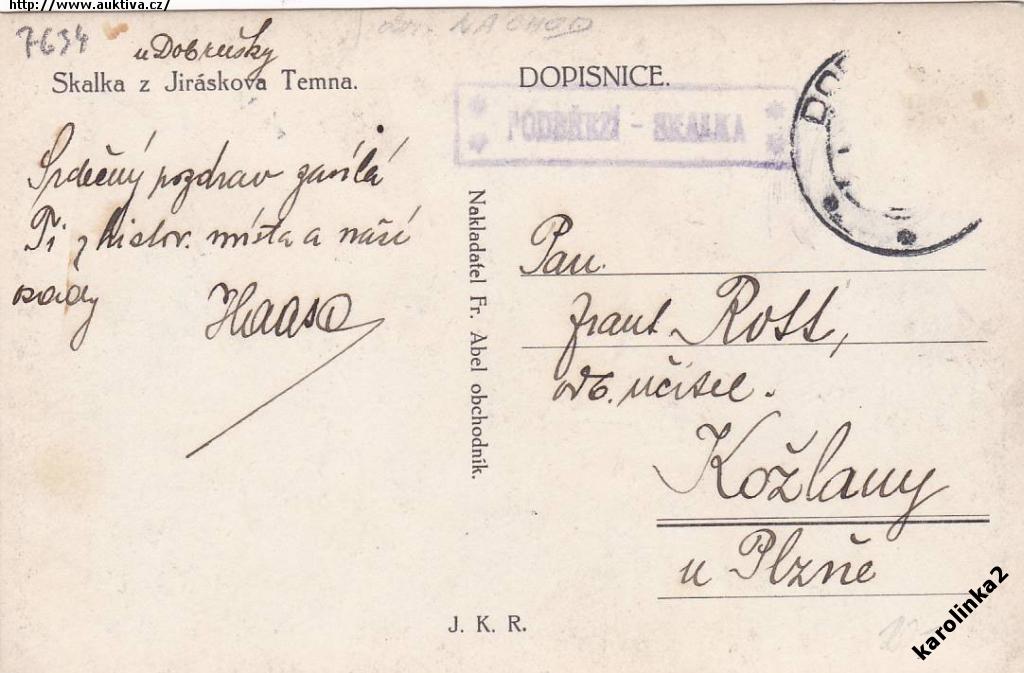 http://www.auktiva.cz/
7634
u Dobrušky
Skalka z Jiráskova Temna.
Srdečný pozdrav zasílá
Ti z histor. místa a naší
osady
Haasa
okr. NÁCHOD
DOPISNICE.
PODBŘEZÍ - SKALKA
DOB
Nakladatel Fr. Abel obchodník.
Pan
Frant. Rott,
odb. učitel.
Kožlany
u Plzně
J. K. R.
karolinka2